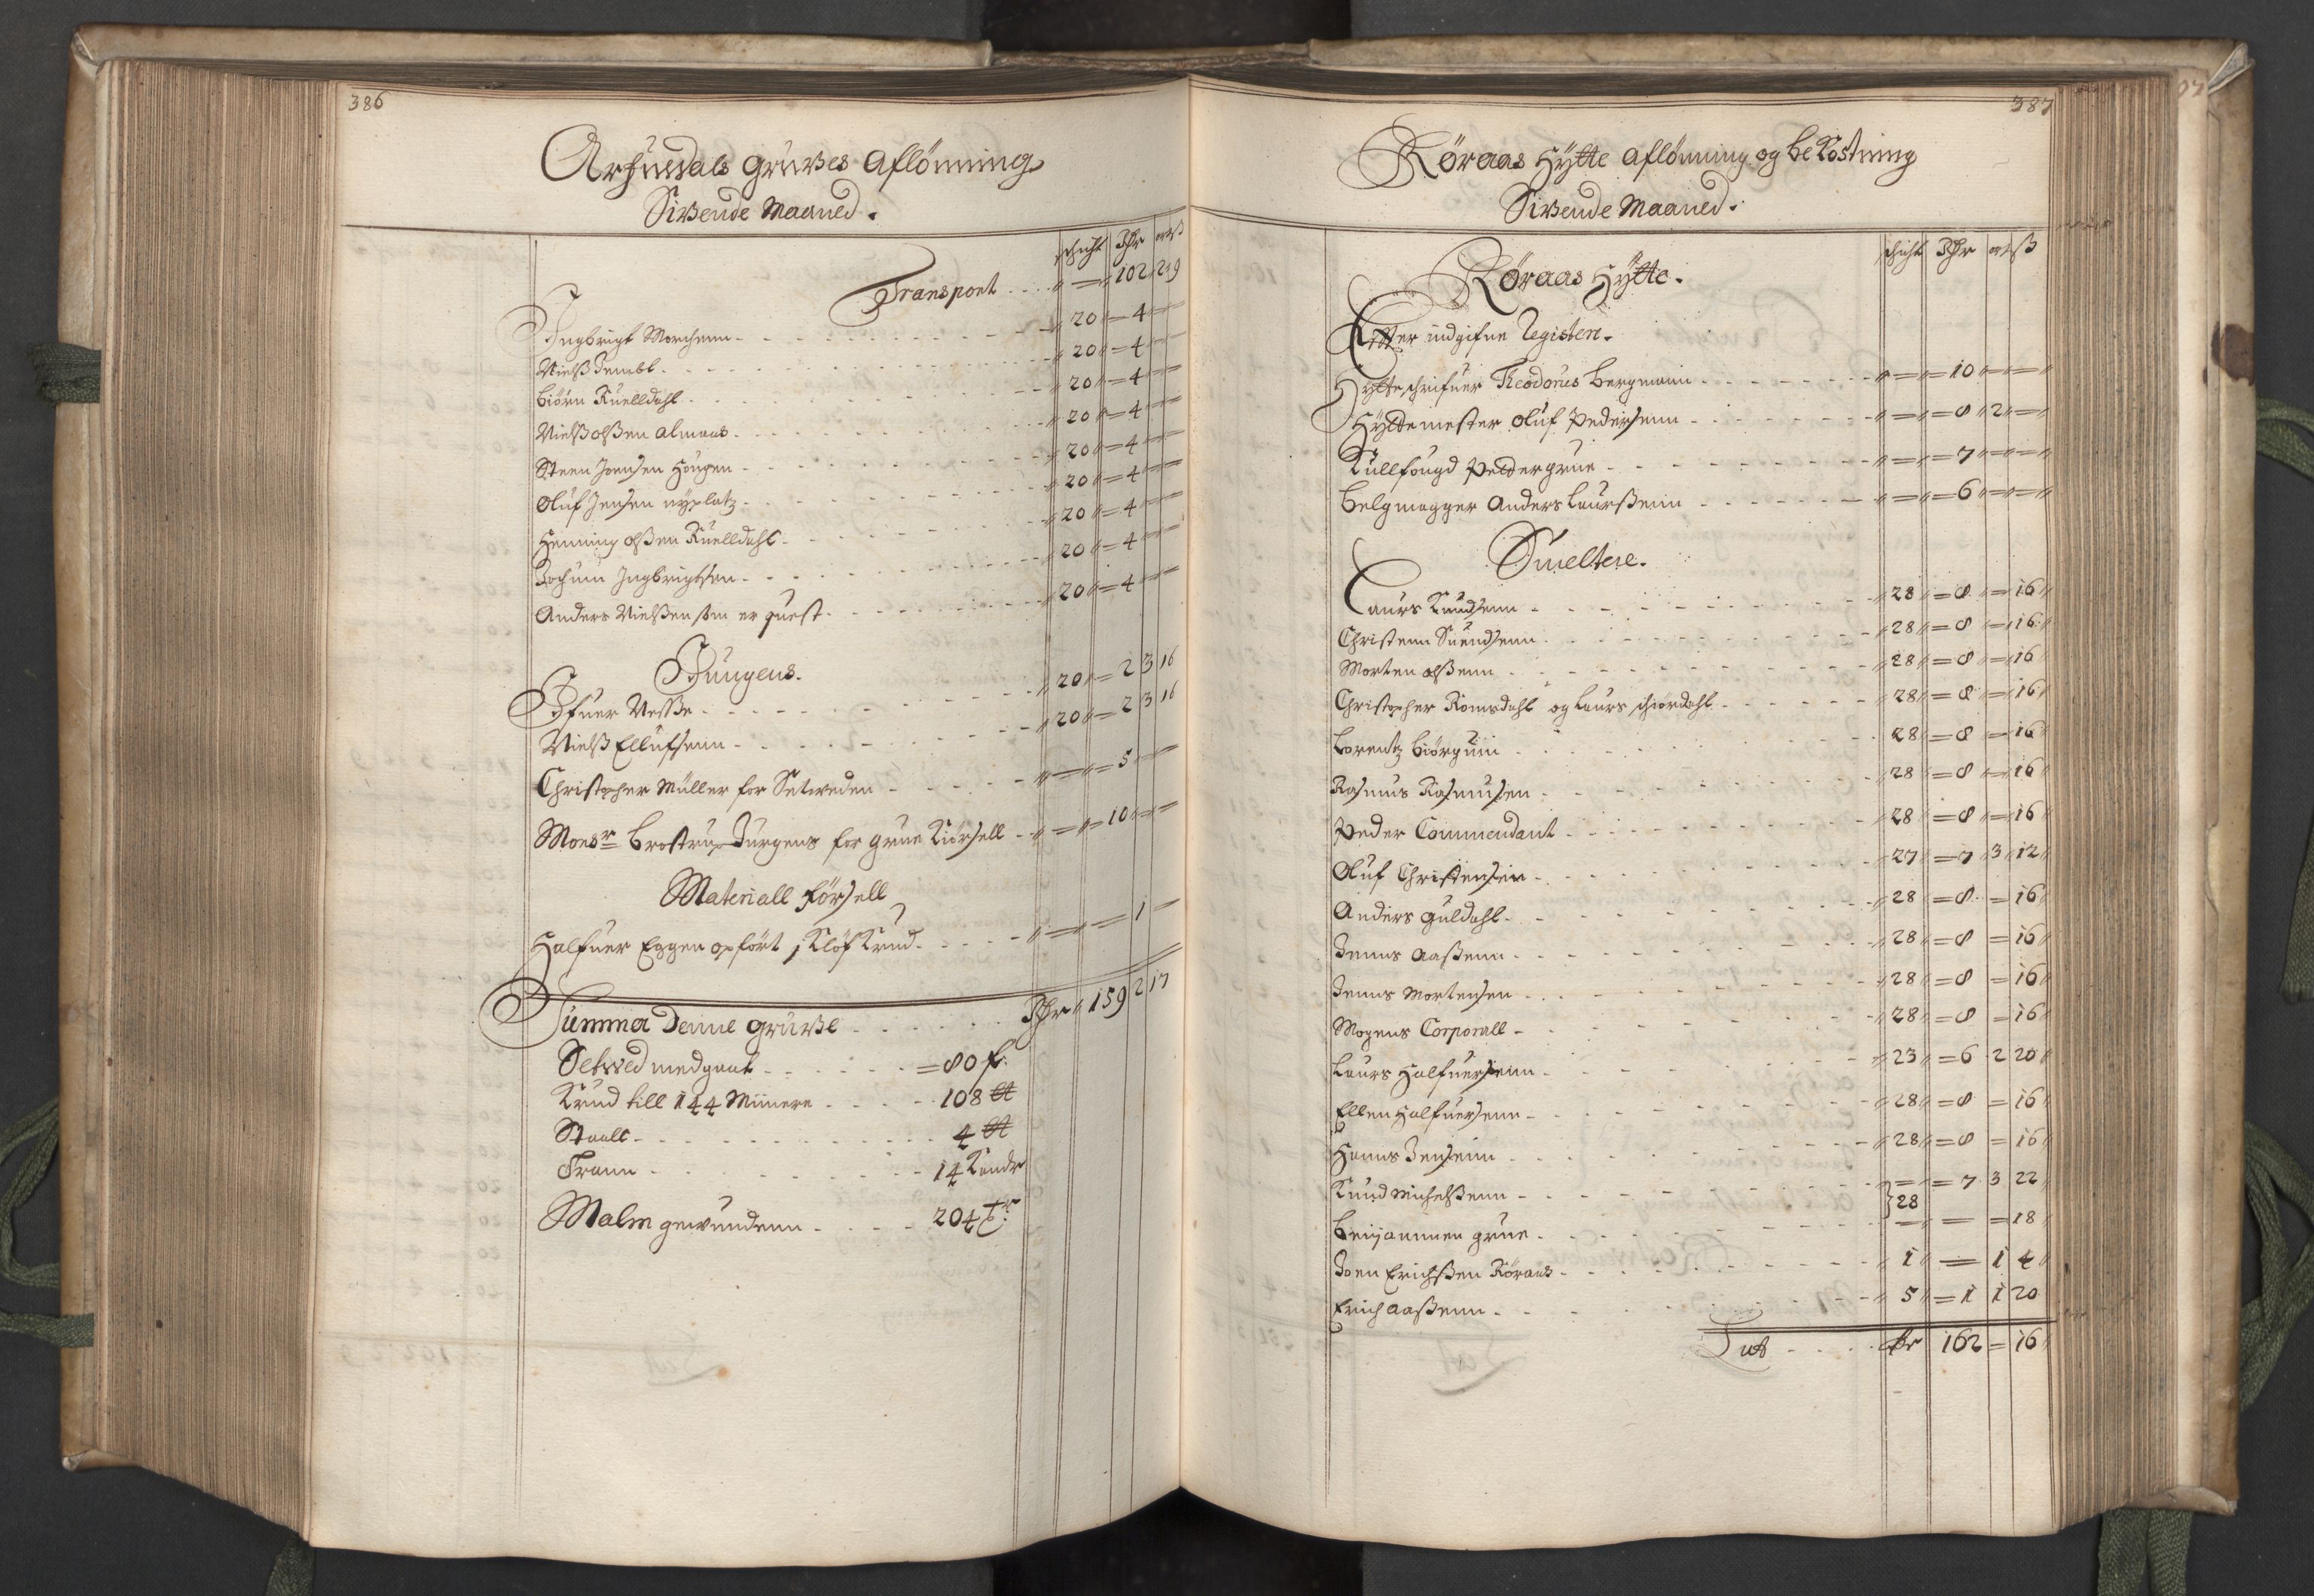 386
Arhusdals Grufves Aflönning
Sivende Maaned.
schicht Rdr ort ß
Transport 102 2 19
Ingbrigt Morchenn 20 4
Nielß Jembt 20 4
Biörn Kuelldahl 20 4
Nielß olßen almaas 20 4
Steen Joensen Hougen 20 4
Oluf Jensen nyplatz 20 4
Henning olßen Kuelldahl 20 4
Jochum Ingbrigtsen 20 4
Anders Nielßen som er quest 20 4
Jungens.
Ifuer Nesße 20 2 3 16
Nielß Ellufsenn 20 2 3 16
Christopher Müller for Setweden 5
Monsr Brostrup Jurgens for grue Kiörsell 10
Materiall försell
Halfuer Eggen opfört j Klöf Krud 1
Summa Denne Grufve Rdr 159 2 17
Setved medgaat 80 f.
Krud till 144 Miinere 108 ℔
Staall 4 ℔
Trann 14 Kandr
Malm gewundenn 204 Tr
387
Röraas Hytte Aflönning og beKostning
Sivende Maaned.
schicht Rdr ort ß
Röraas Hytte.
Efter indgifne Registere.
Hytteschrifuer Theodorus Bergmann 10
Hyttemester Oluf Pedersenn 8 2
Kullfougd Peder grue 7
Belgmagger Anders Laurßenn 6
Smeltere.
Laurs Knudsenn 28 8 16
Christenn Suendsenn 28 8 16
Morten olßenn 28 8 16
Christopher Romsdahl og Laurs schiordahl 28 8 16
Lorentz Biörguin 28 8 16
Rasmus Rasmusen 28 8 16
Peder Commendant 28 8 16
Oluf Christensen 27 7 3 12
Anders guldahl 28 8 16
Jenns Aaßenn 28 8 16
Jenns Mortensen 28 8 16
Mogens Corporall 28 8 16
Laurs Halfuersenn 23 6 2 20
Ellen Halfuersenn 28 8 16
Hanns Jensenn 28 8 16
Knud Michelßenn 7 3 22
28
Benjaminen grue 18
Joen Erichßen Röraas 1 1 4
Erich Aaßenn 5 1 1 20
Lat Rdr 162 16